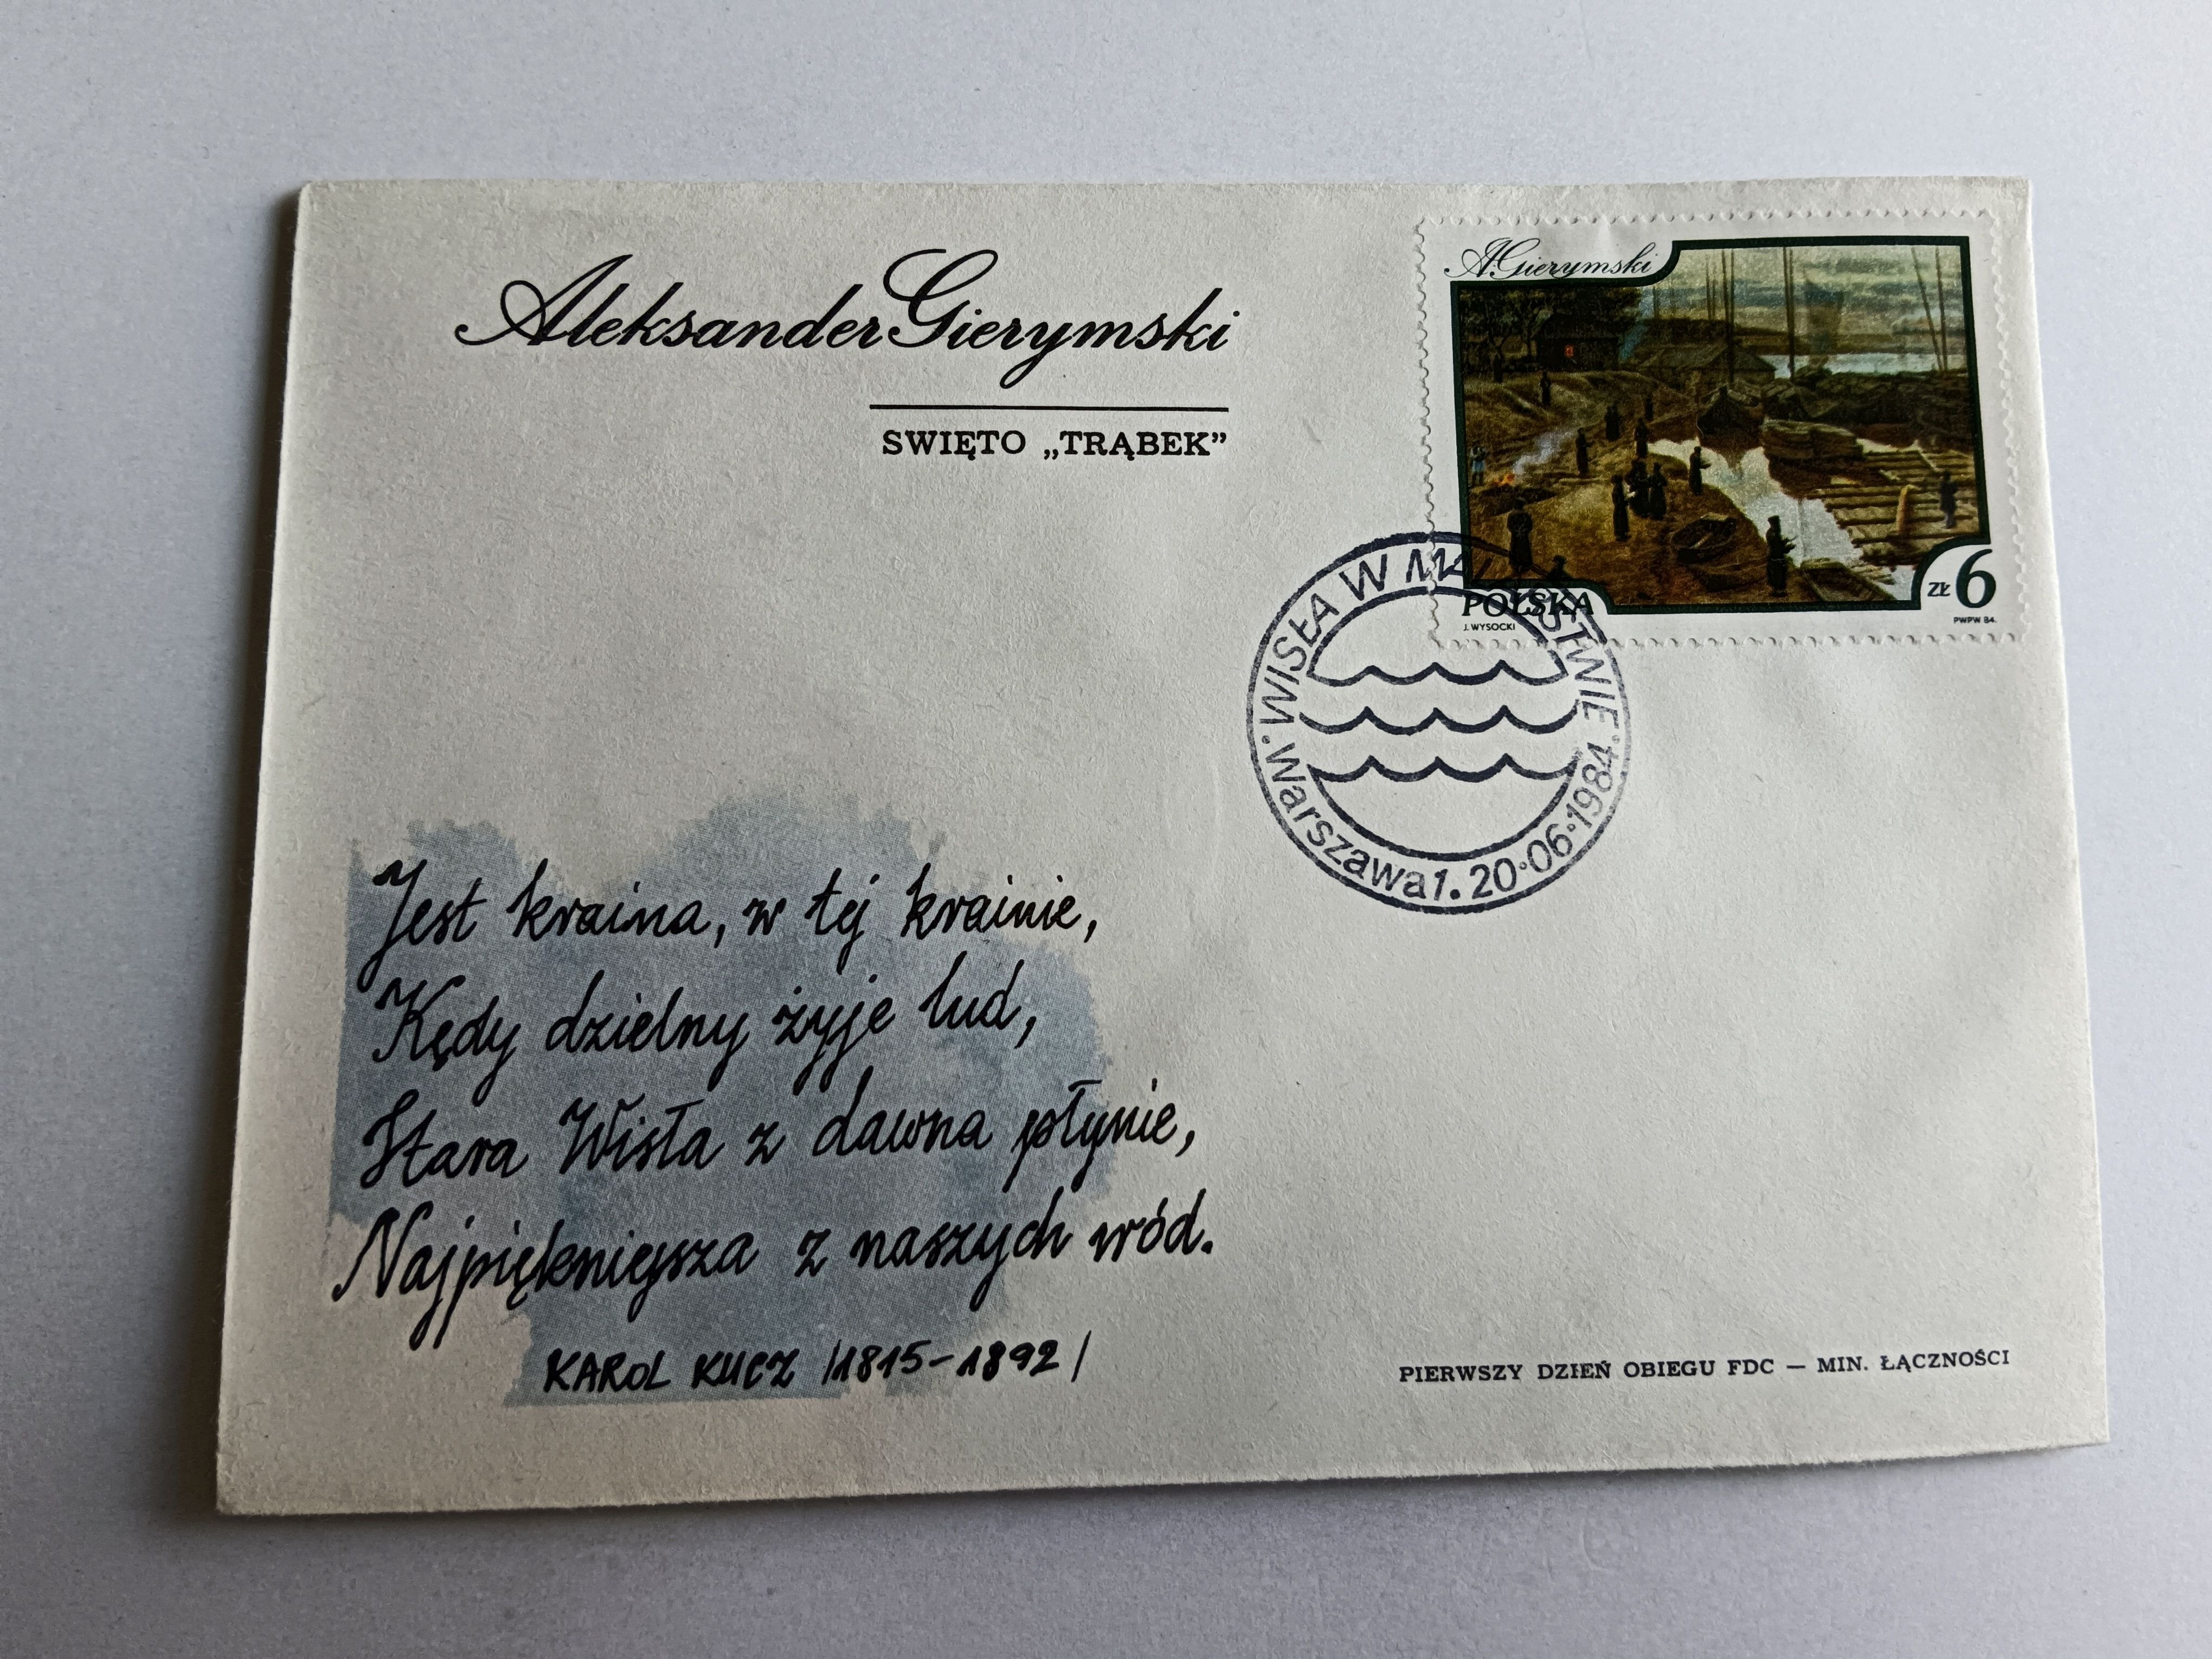 Aleksander Gierymski
SWIĘTO „TRĄBEK”
A. Gierymski
POLSKA
J. WYSOCKI
ZŁ 6
PWPW 84.
· WISŁA W MALARSTWIE ·
Warszawa 1. 20·06·1984
Jest kraina, w tej krainie,
Kędy dzielny żyje lud,
Stara Wisła z dawna płynie,
Najpiękniejsza z naszych wód.
KAROL KUCZ /1815-1892/
PIERWSZY DZIEŃ OBIEGU FDC — MIN. ŁĄCZNOŚCI